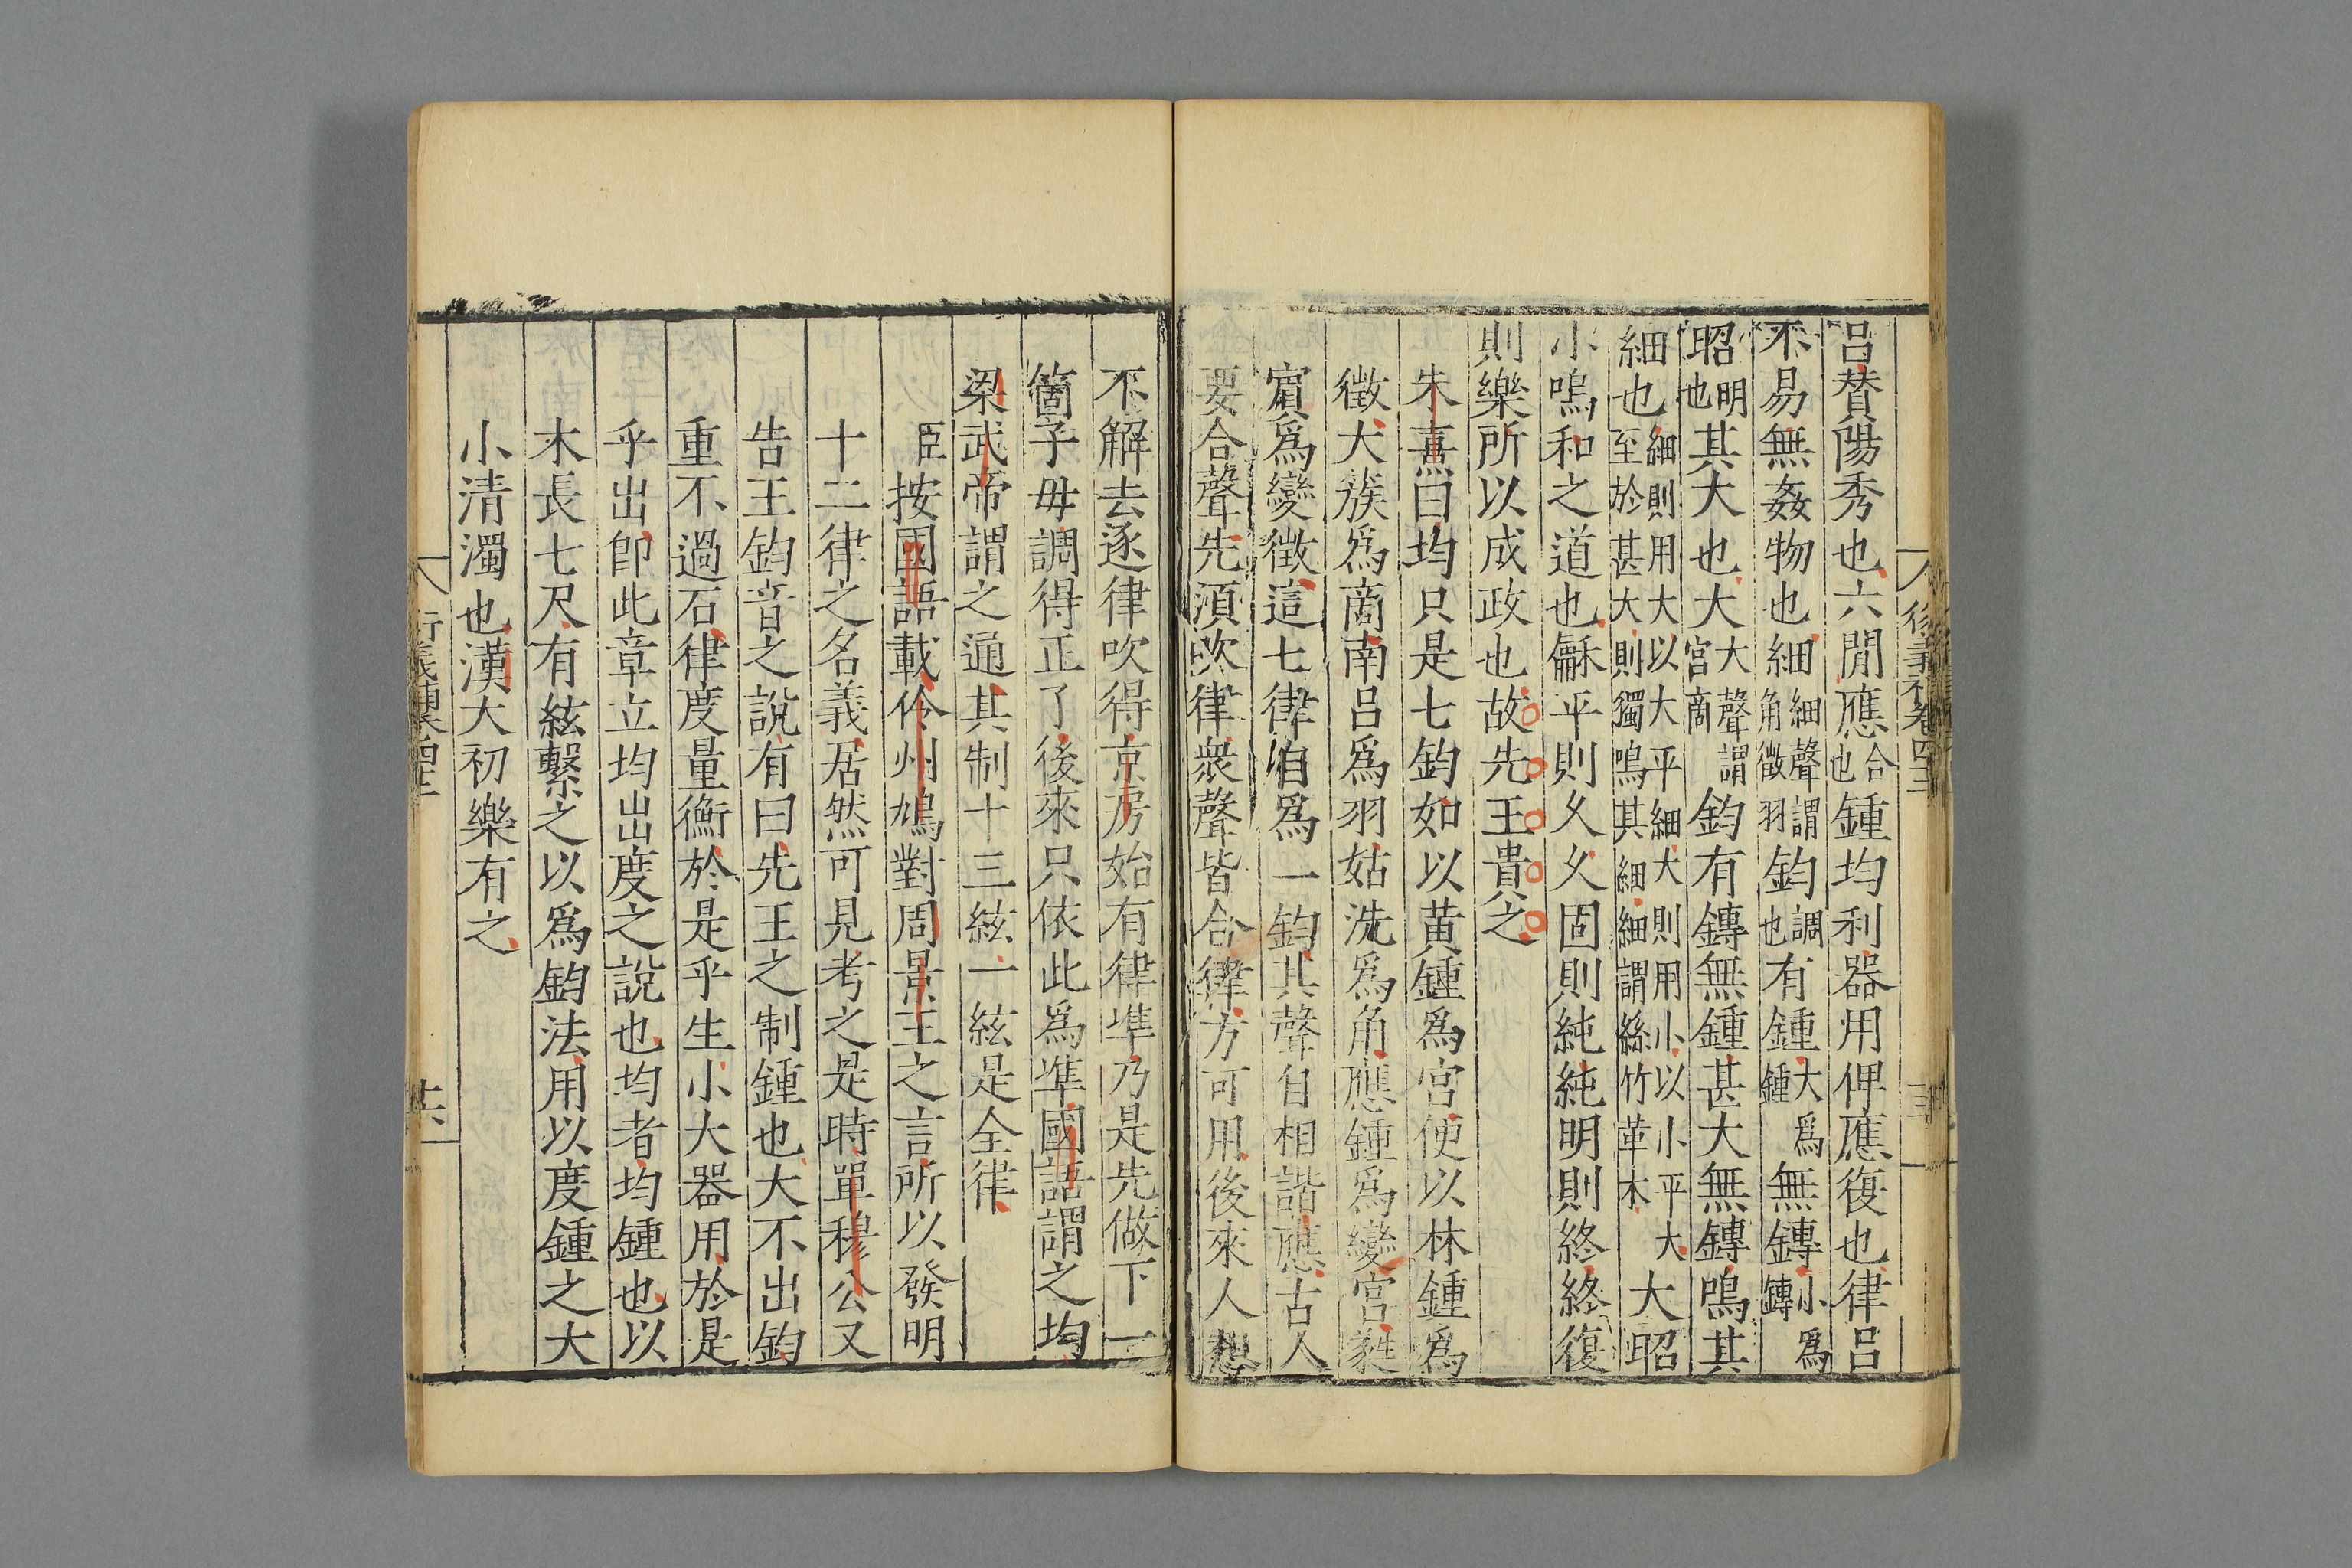 呂賛陽秀也六閒應合也鍾均利器用俾應復也律呂
不易無姦物也細細聲謂角徵羽鈞調也有鍾大鍾爲無鏄小鏄爲
昭明也其大也大大聲謂宮商鈞有鏄無鍾甚大無鏄鳴其
細也細則用大以大平細大則用小以小平大至於甚大則獨鳴其細細謂絲竹革木大昭
小鳴和之道也龢平則久久固則純純明則終終復
則樂所以成政也故先王貴之
朱熹曰均只是七鈞如以黄鍾爲宮便以林鍾爲
徵大蔟爲商南呂爲羽姑洗爲角應鍾爲變宮蕤
賔爲變徵這七律自爲一鈞其聲自相諧應古人
要合聲先須吹律衆聲皆合律方可用後來人想
不解去逐律吹得京房始有律準乃是先做下一
箇子毋調得正了後來只依此爲準國語謂之均
梁武帝謂之通其制十三絃一絃是全律
臣按國語載伶州鳩對周景王之言所以發明
十二律之名義居然可見考之是時單穆公又
告王鈞音之說有曰先王之制鍾也大不出鈞
重不過石律度量衡於是乎生小大器用於是
乎出卽此章立均出度之說也均者均鍾也以
木長七尺有絃繫之以爲鈞法用以度鍾之大
小清濁也漢大初樂有之